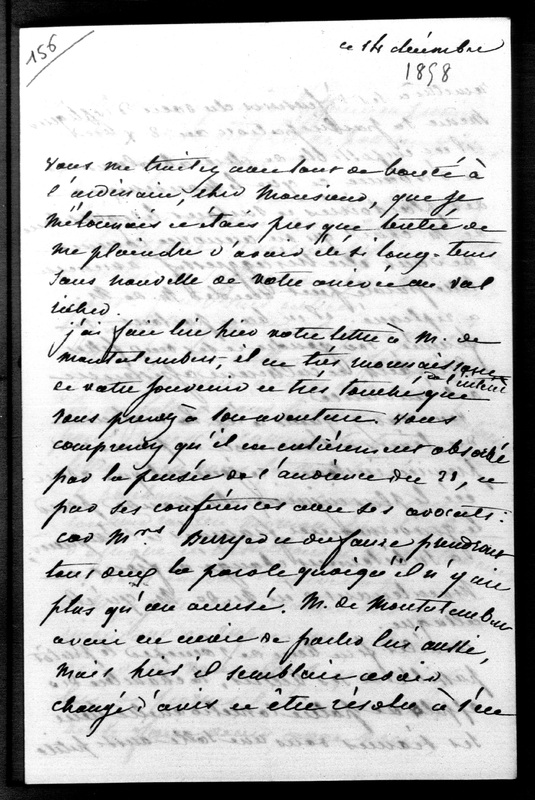 156
ce 14 décembre
1858
vous me traitez avec tant de bonté à
l'ordinaire, cher Monsieur, que je
m'étonnais et étais presque tentée de
me plaindre d'avoir été si long-tems
sans nouvelle de votre arrivée au val
richer.
j'ai fait lire hier votre lettre à M. de
montalembert, il est très reconnaissant
de votre souvenir et très touché de l'intérêt que
vous prenez à son aventure. vous
comprenez qu'il est entièrement absorbé
par la pensée de l'audience du 21, et
par ses conférences avec ses avocats:
car Mrs Berryer et dufaure prendront
tous deux la parole quoiqu'il n'y ait
plus qu'un accusé. M. de Montalembert
avait envie de parler lui aussi,
mais hier il semblait avoir
changé d'avis et être résolu à s'en